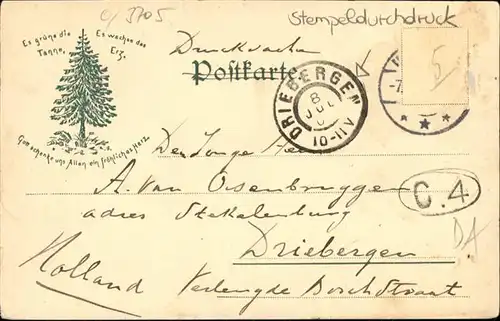 C/ 3705
Stempeldurchdruck
Es grüne die Tanne,
Es wachse das Erz,
Gott schenke uns Allen ein fröhliches Herz.
Drucksache
Postkarte
5
DRIEBERGEN
8 JUL
10-11V
-7.
Den Jonge Heer
A. van Ossenbruggen
adres Stekalenburg
Driebergen
Holland Verlengde Boschstraat
C.4